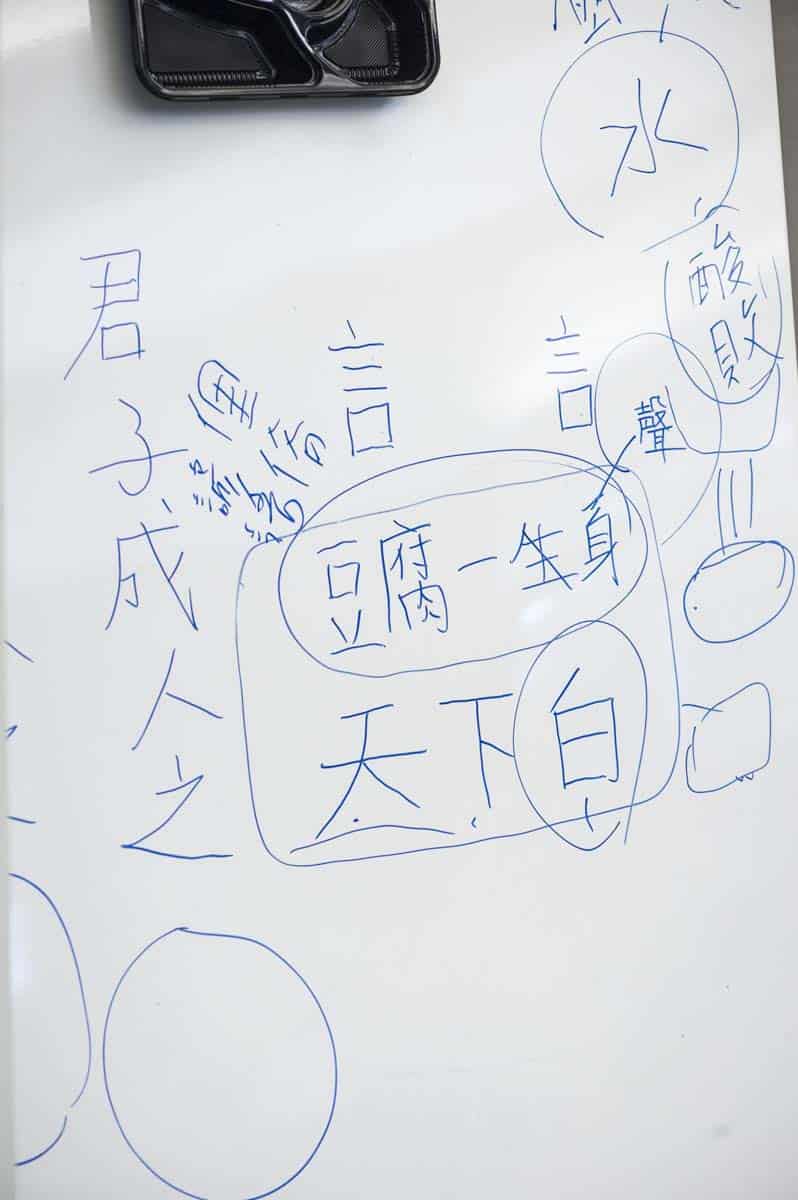 水
酸敗
聲
言
言
豆腐一生身
天下白
君子成人之